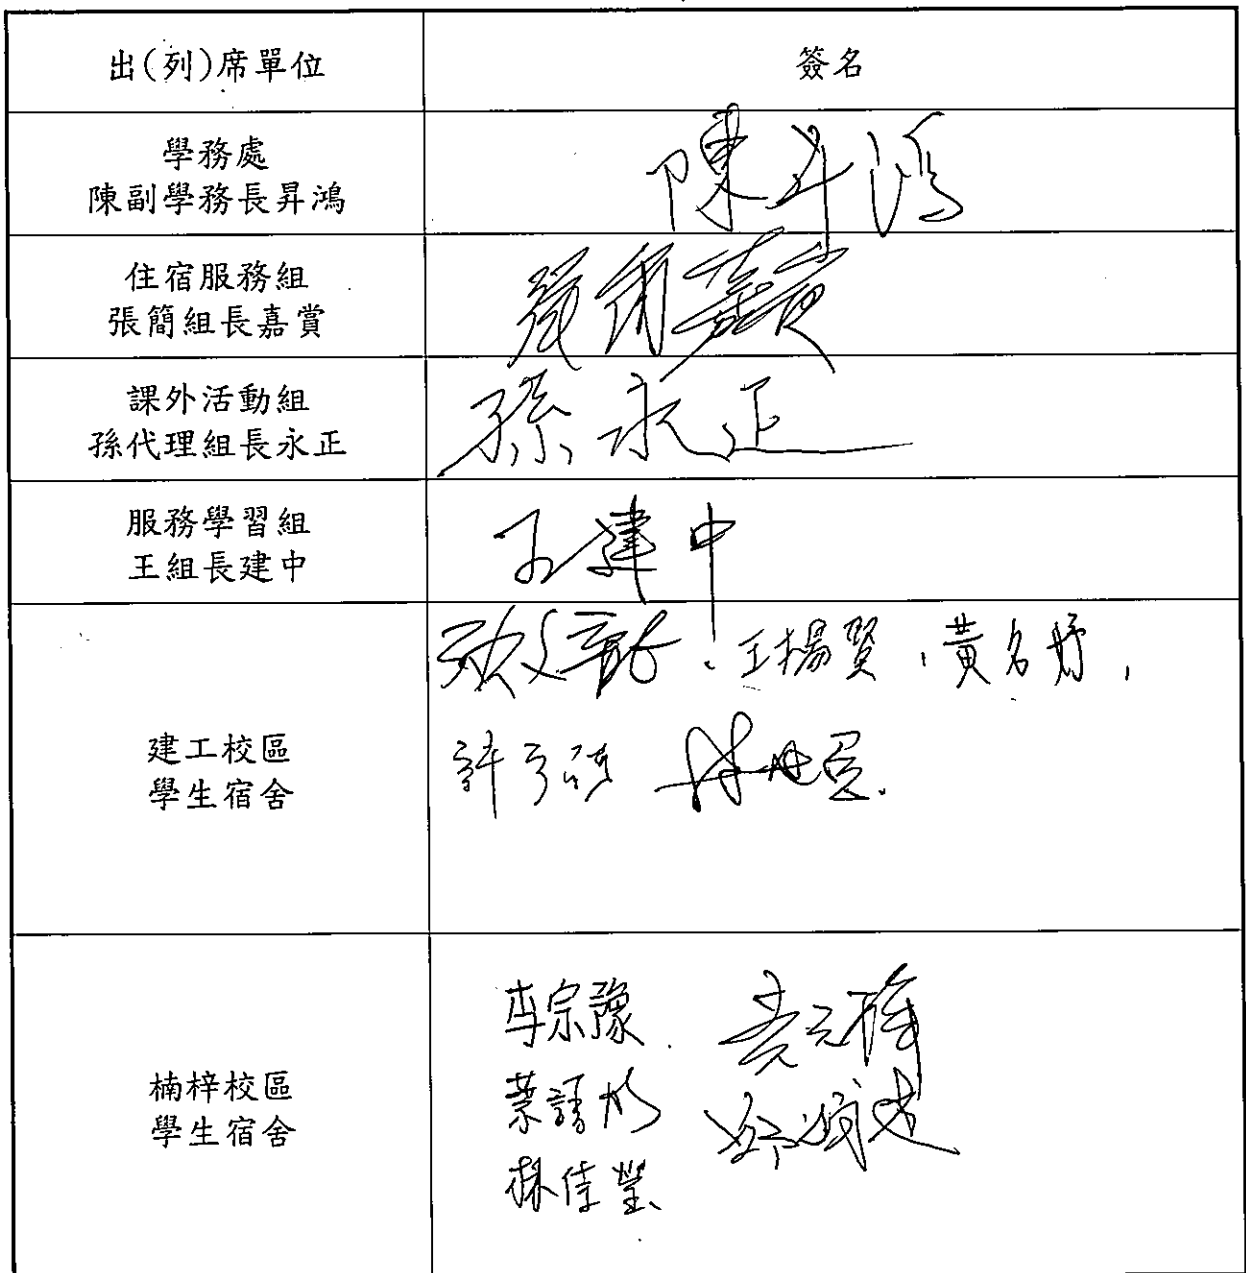 出(列)席單位
簽名
學務處
陳副學務長昇鴻
陳昇鴻
住宿服務組
張簡組長嘉賞
張簡嘉賞
課外活動組
孫代理組長永正
孫永正
服務學習組
王組長建中
王建中
建工校區
學生宿舍
王楊賢、黃名妤、
許
楠梓校區
學生宿舍
李宗豫
葉語彤
林佳瑩